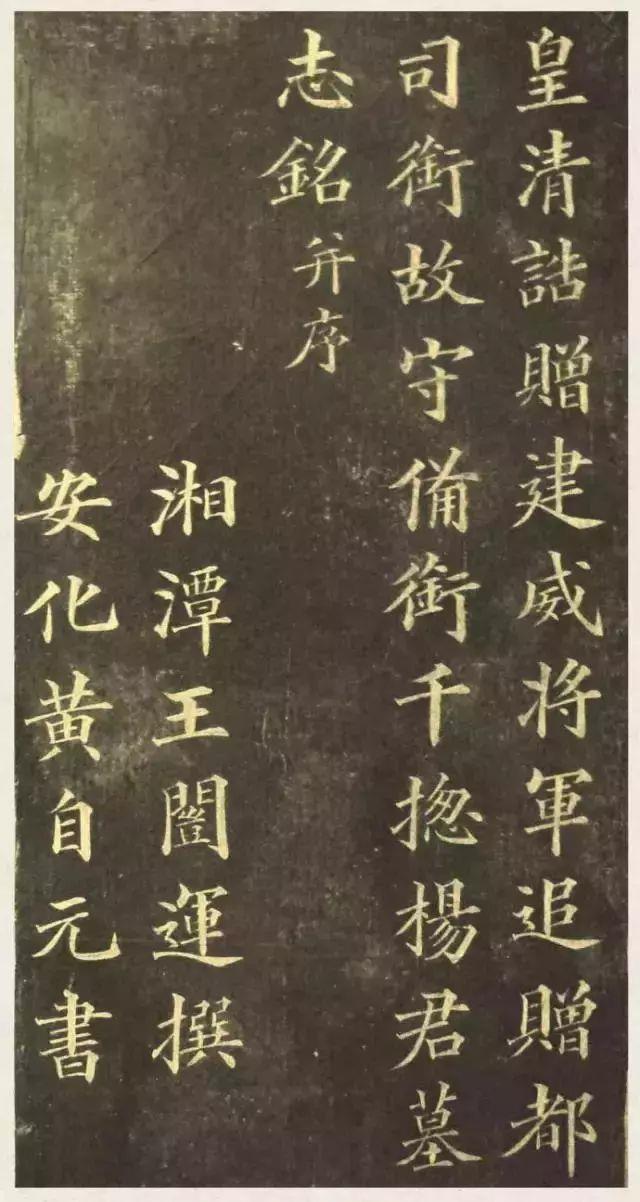 皇清誥贈建威將軍追贈都
司銜故守備銜千揔楊君墓
志銘并序
湘潭王闓運撰
安化黄自元書